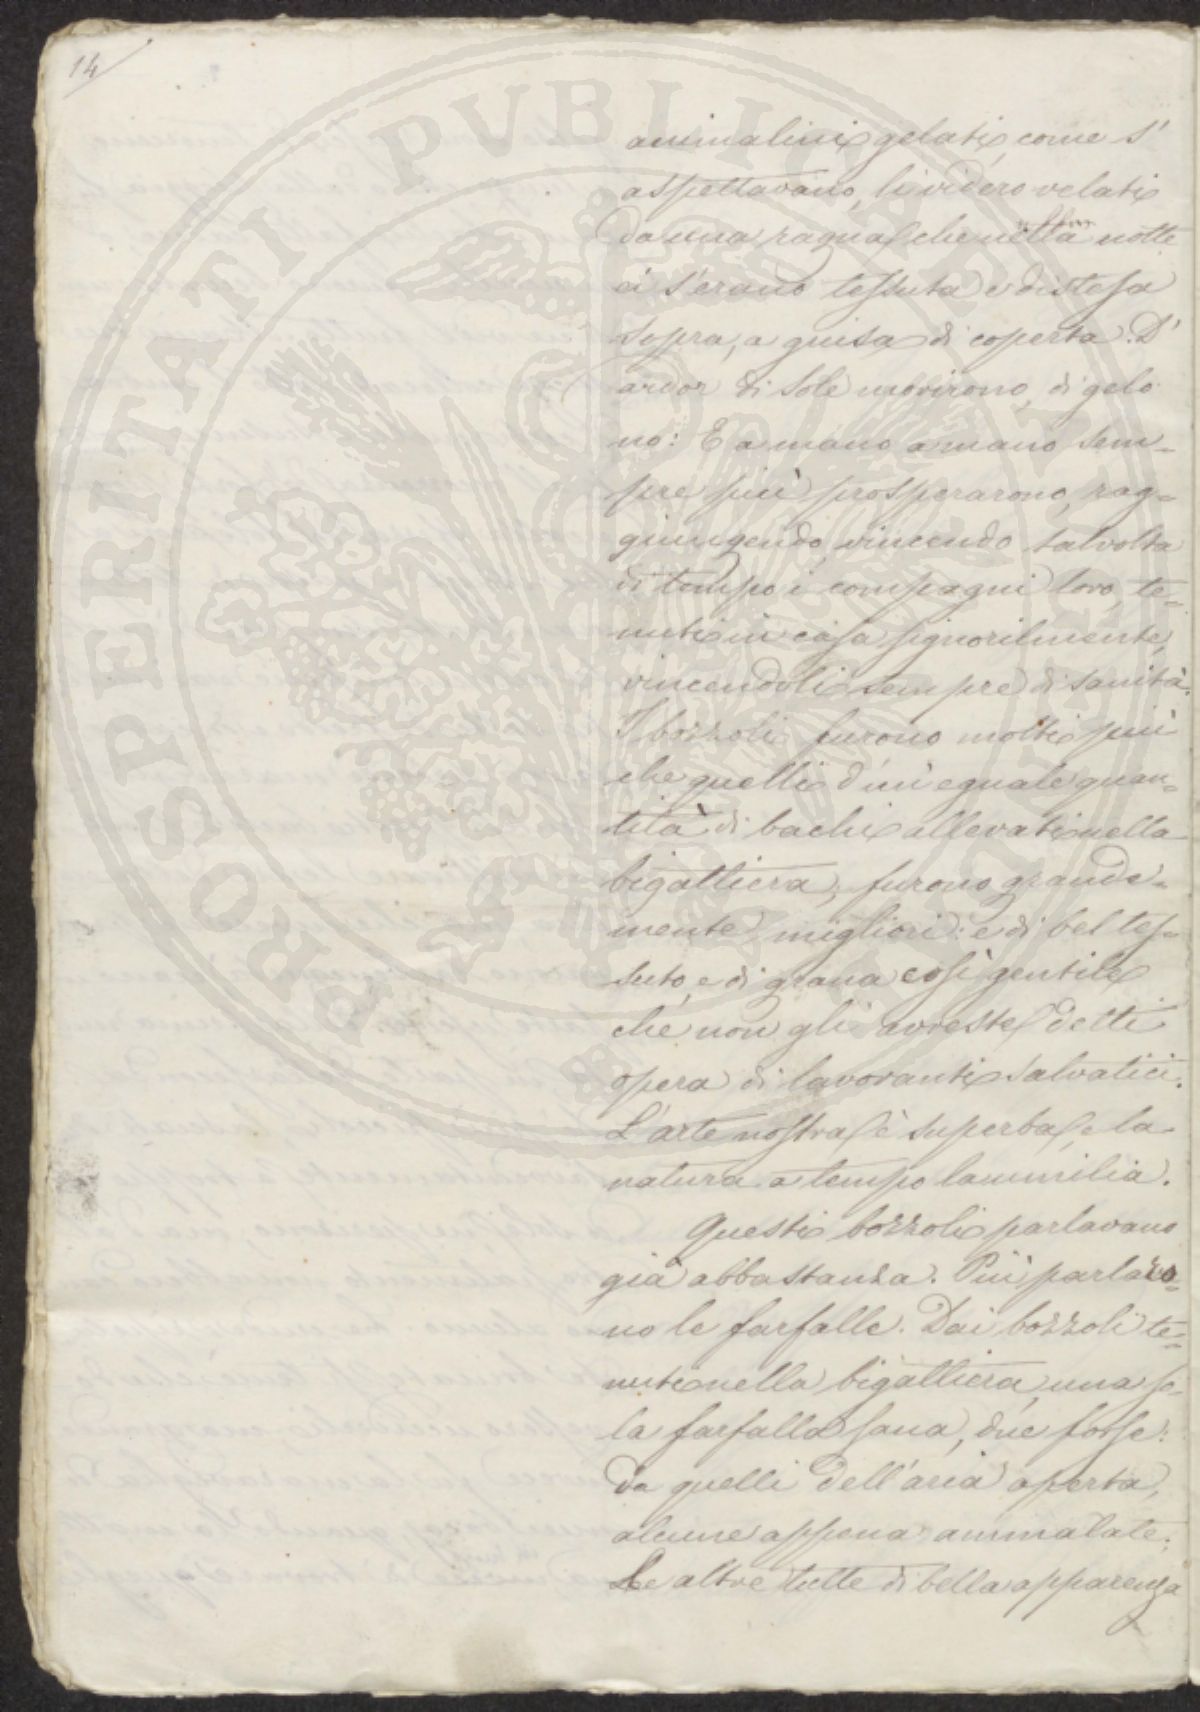 14
animalini gelati, come s'
aspettavano, li videro velati
da una ragna, che nella notte
ci s'erano tessuta e distesa
sopra, a guisa di coperta. D'
ardor di sole morirono, di gelo
no: E a mano a mano sem-
pre più prosperarono, rag-
giungendo, vincendo talvolta
di tempo i compagni loro, te-
nuti in casa signorilmente,
vincendoli sempre di sanità.
I bozzoli furono molti più
che quelli d'un'eguale quan-
tità di bachi allevati nella
bigattiera; furono grande-
mente migliori: e di bel tes-
suto, e di grana così gentile
che non gli avreste detti
opera di lavoranti salvatici.
L'arte nostra è superba, e la
natura a tempo l'aumilia.
Questi bozzoli parlavano
già abbastanza. Più parlaro-
no le farfalle. Dai bozzoli te-
nuti nella bigattiera, una so-
la farfalla sana, due forse:
da quelli dell'aria aperta,
alcune appena ammalate;
Le altre tutte di bella apparenza
PROSPERITATI PUBLICAE AUGENDAE